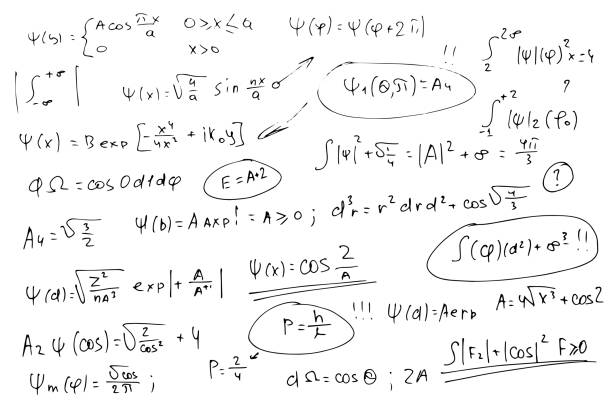 ψ(b) = { A cos πx/a   0 ≥ x ≤ a
0   x > 0
ψ(φ) = ψ(φ + 2π)
!!
∫₂^{2∞} |ψ|(φ)² x = 4
|∫_{-∞}^{+∞}|
ψ(x) = √(4/a) sin nx/a
ψ₁(Θ, π) = A₄
?
∫_{-1}^{+2} |ψ|₂ (φ₀)
ψ(x) = B exp [-x⁴/4x² + ik₀y]
∫|ψ|² + √(1/4) = |A|² + ∞ = 4π/3
φΩ = cos 0 d1dφ
E = A+2
?
A₄ = √(3/2)
ψ(b) = A = A ≥ 0 ; d³r = r² drd² + cos √(4/3)
∫(φ)(d²) + ∞³ !!
ψ(d) = √(Z²/nA³) exp |+ A/A⁺|
ψ(x) = cos 2/A
P = h/t
!!! ψ(d) = Aerp
A = 4√x³ + cos2
A₂ ψ (cos) = √(2/cos²) + 4
ψₘ(φ) = √cos/2π ;
P = 2/4
dΩ = cos Θ ; 2A
∫|F₂| + |cos|² F ≥ 0